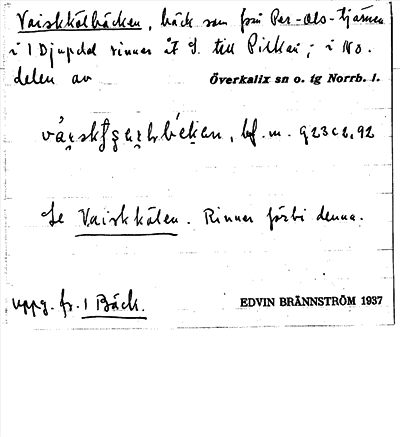 Vaiskkälbäcken, bäck som från Per-Ols-tjärnen
i 1 Djupdal rinner åt S. till Pilkai; i NO.
delen av Överkalix sn o. tg Norrb. l.
bf. m.
Se Vaiskkälen. Rinner förbi denna.
uppg. fr. 1 Bäck. EDVIN BRÄNNSTRÖM 1937